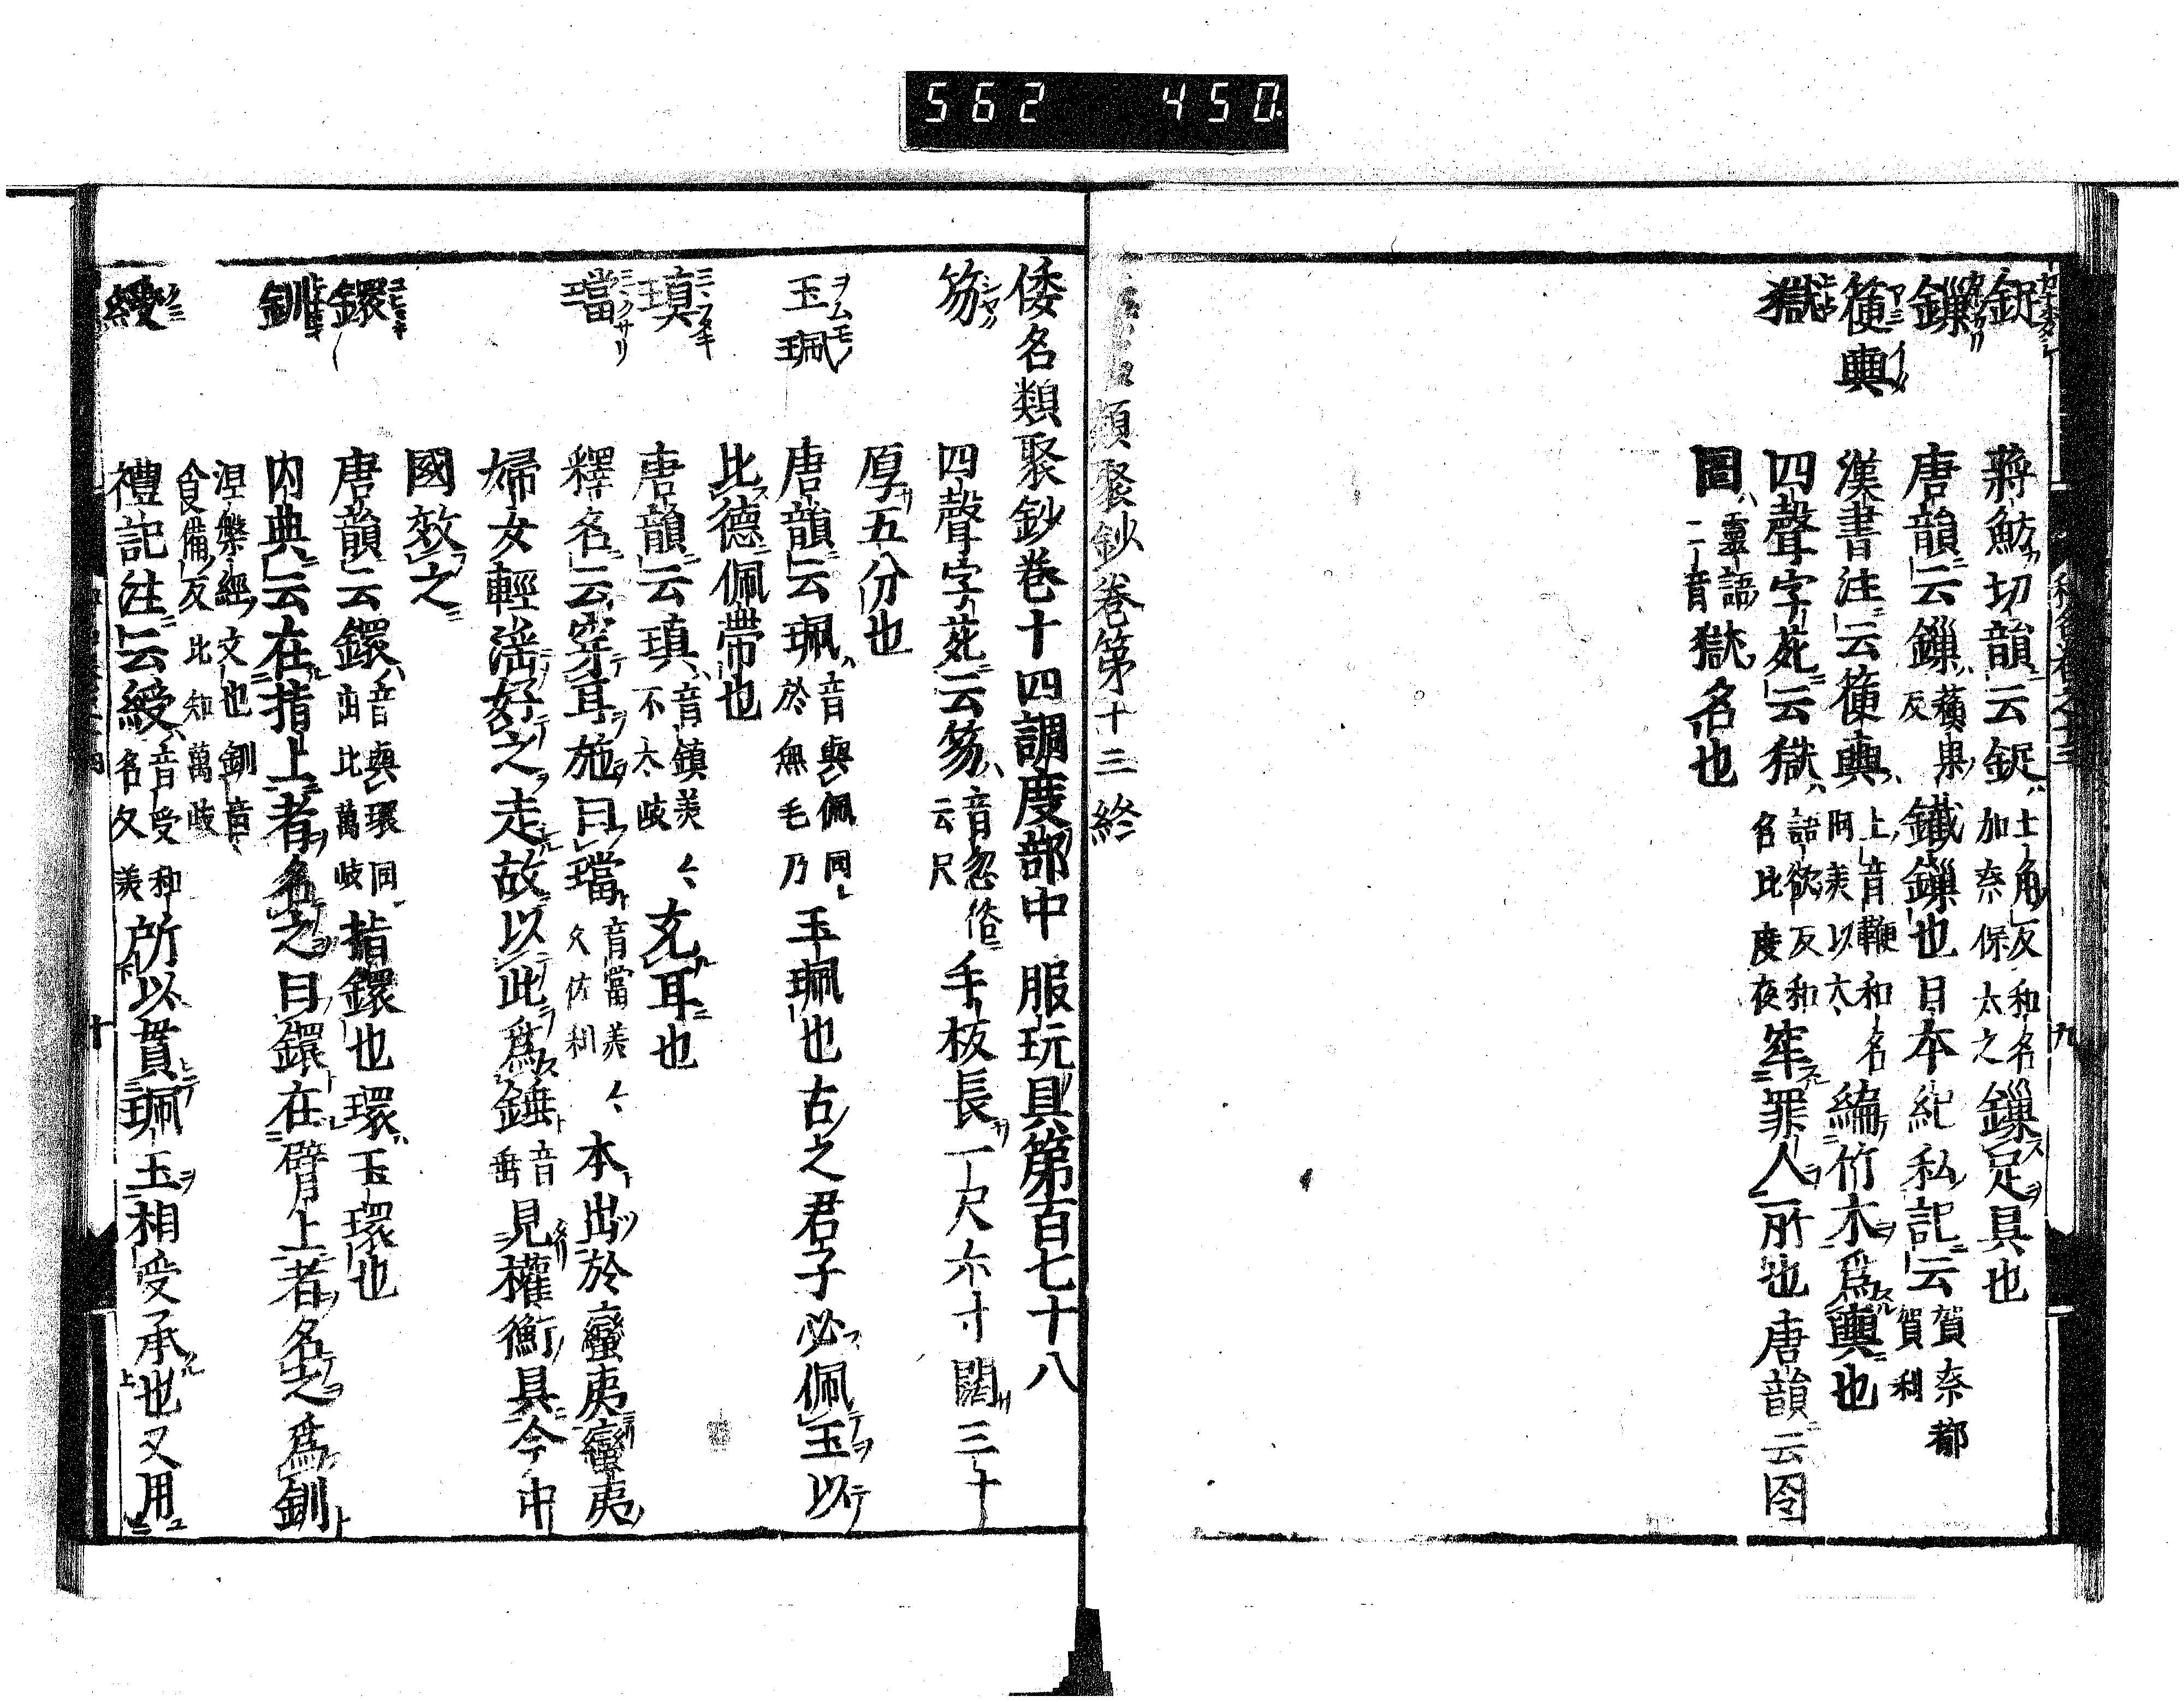 562 450
鋜 蔣魴切韻云鋜 士角反和名加奈保太之 鏁足具也
鏁 唐韻云鏁 蘓果反 鐵鏁也日本紀私記云 賀奈都賀利
箯輿 漢書注云箯輿 上音鞭和名阿美以太 編竹木爲輿也
獄 四聲字苑云獄 語欲反和名比度夜 牢罪人所也唐韻云囹
圄 靈語二音 獄名也
類聚鈔卷第十三終
倭名類聚鈔卷十四調度部中 服玩具第百七十八
笏 四聲字苑云笏 音忽俗云尺 手板長一尺六寸闊三寸
厚五分也
玉珮 唐韻云珮 音與佩同於無毛乃 玉珮也古之君子必佩玉以
比德佩帶也
瑱 唐韻云瑱 音鎮美々不太岐 充耳也
璫 釋名云穿耳施曰璫 音當美々久佐利 本出於蠻夷蠻夷
婦女輕滛好之走故以此爲錘 音垂 見權衡具今中
國效之
鐶 唐韻云鐶 音與環同由比萬岐 指鐶也環玉環也
釧 内典云在指上者名之曰鐶在臂上者名之爲釧
涅槃經文也釧音食備反比知萬岐
綬 禮記注云綬 音受和名久美 所以貫珮玉相受承也又用